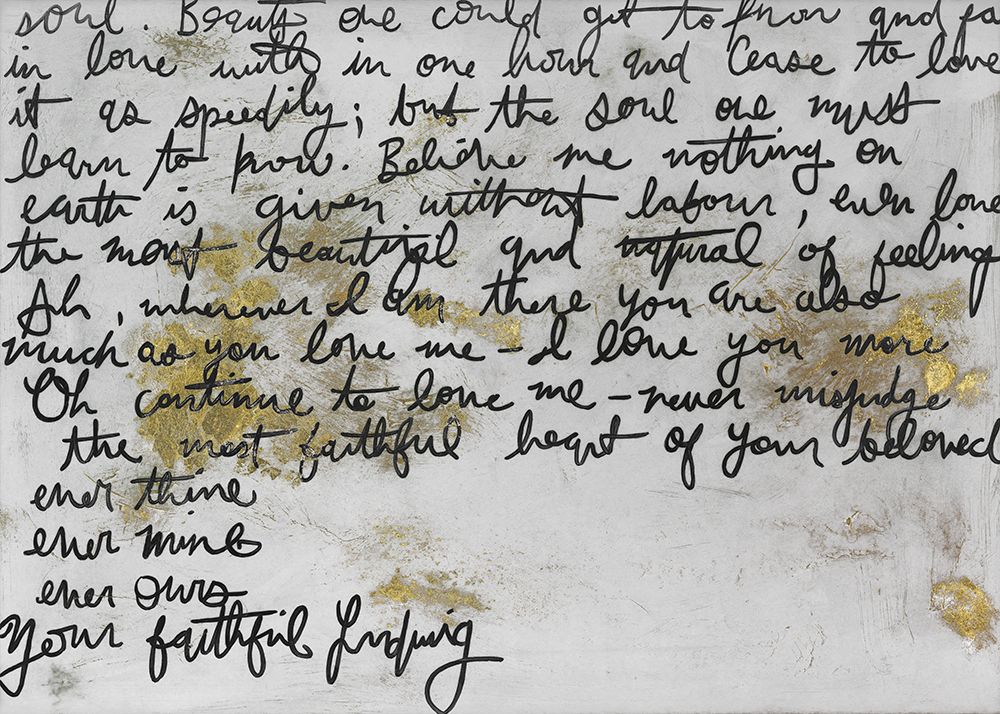 soul. Beauty one could get to know and fa
in love with in one hour and cease to love
it as speedily; but the soul one must
learn to know. Believe me nothing on
earth is given without labour, even love
the most beautiful and natural of feelings
Ah, wherever I am there you are also
much as you love me - I love you more
Oh continue to love me - never misjudge
the most faithful heart of your beloved
ever thine
ever mine
ever ours
Your faithful Ludwig